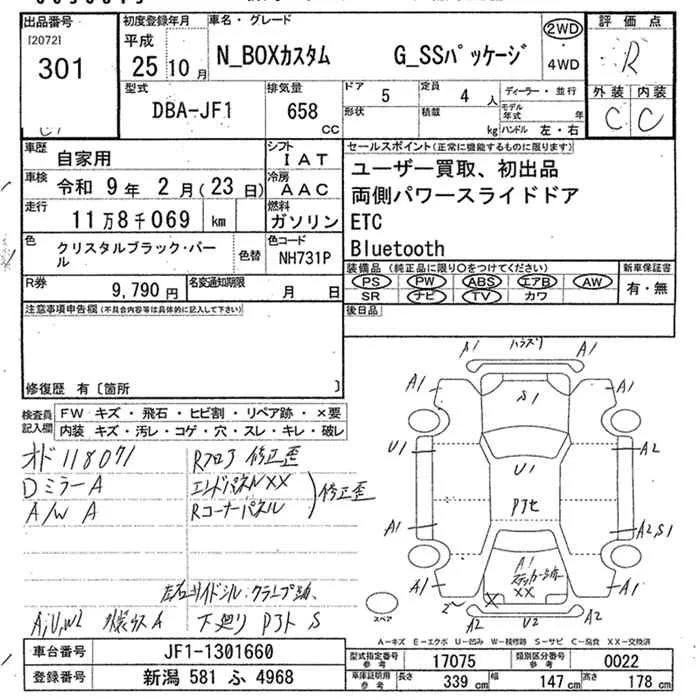 出品番号
[2072]
301
初度登録年月
平成
25 10 月
車名・グレード
N_BOXカスタム G_SSパッケージ
2WD
・4WD
評価点
R
外装 内装
C C
型式
DBA-JF1
排気量
658
CC
ドア 5
形状
定員 4 人
積載 kg
ディーラー・並行
モデル年式 年
ハンドル 左・右
車歴 自家用
シフト IAT
車検 令和 9年 2月(23日)
冷房 AAC
走行 11万8千069 km
燃料 ガソリン
色 クリスタルブラック・パール
色替
色コード NH731P
R券 9,790 円
名変通知期限 月 日
セールスポイント(正常に機能するものに限ります)
ユーザー買取、初出品
両側パワースライドドア
ETC
Bluetooth
装備品(純正品に限り○をつけてください)
PS PW ABS エアB AW
SR ナビ TV カワ
新車保証書
有・無
後日品
注意事項申告欄(不具合内容等は具体的に記入して下さい)
修復歴 有〔箇所 〕
検査員記入欄
FW キズ・飛石・ヒビ割・リペア跡・×要
内装 キズ・汚レ・コゲ・穴・スレ・キレ・破レ
オド118071
Rフロア 修正歪
DミラーA
エンドパネルXX
修正歪
A/W A
Rコーナーパネル
左右サイドシル.クランプ跡.
A,U,W2
ガラスA
下廻り Pアト S
A1
ハラズリ
A1
A1
S1
A1
U1
U1
A2
Pアセ
A1
A2,S1
A1
A1
ステッカー跡
XX
A1
X
A2
U2
A2
スペア
A－キズ E－エクボ U－凹み W－補修跡 S－サビ C－腐食 XX－交換済
車台番号 JF1-1301660
登録番号 新潟 581 ふ 4968
型式指定番号 参考 17075
類別区分番号 参考 0022
車庫証明用 参考 長さ 339 cm 幅 147 cm 高さ 178 cm